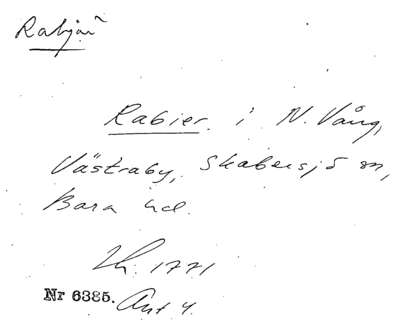 Rabjär
Rabier i N. Vång,
Västraby, Skabersjö sn,
Bara hd.
Lh. 1771
Nr 6385. Ant 4.